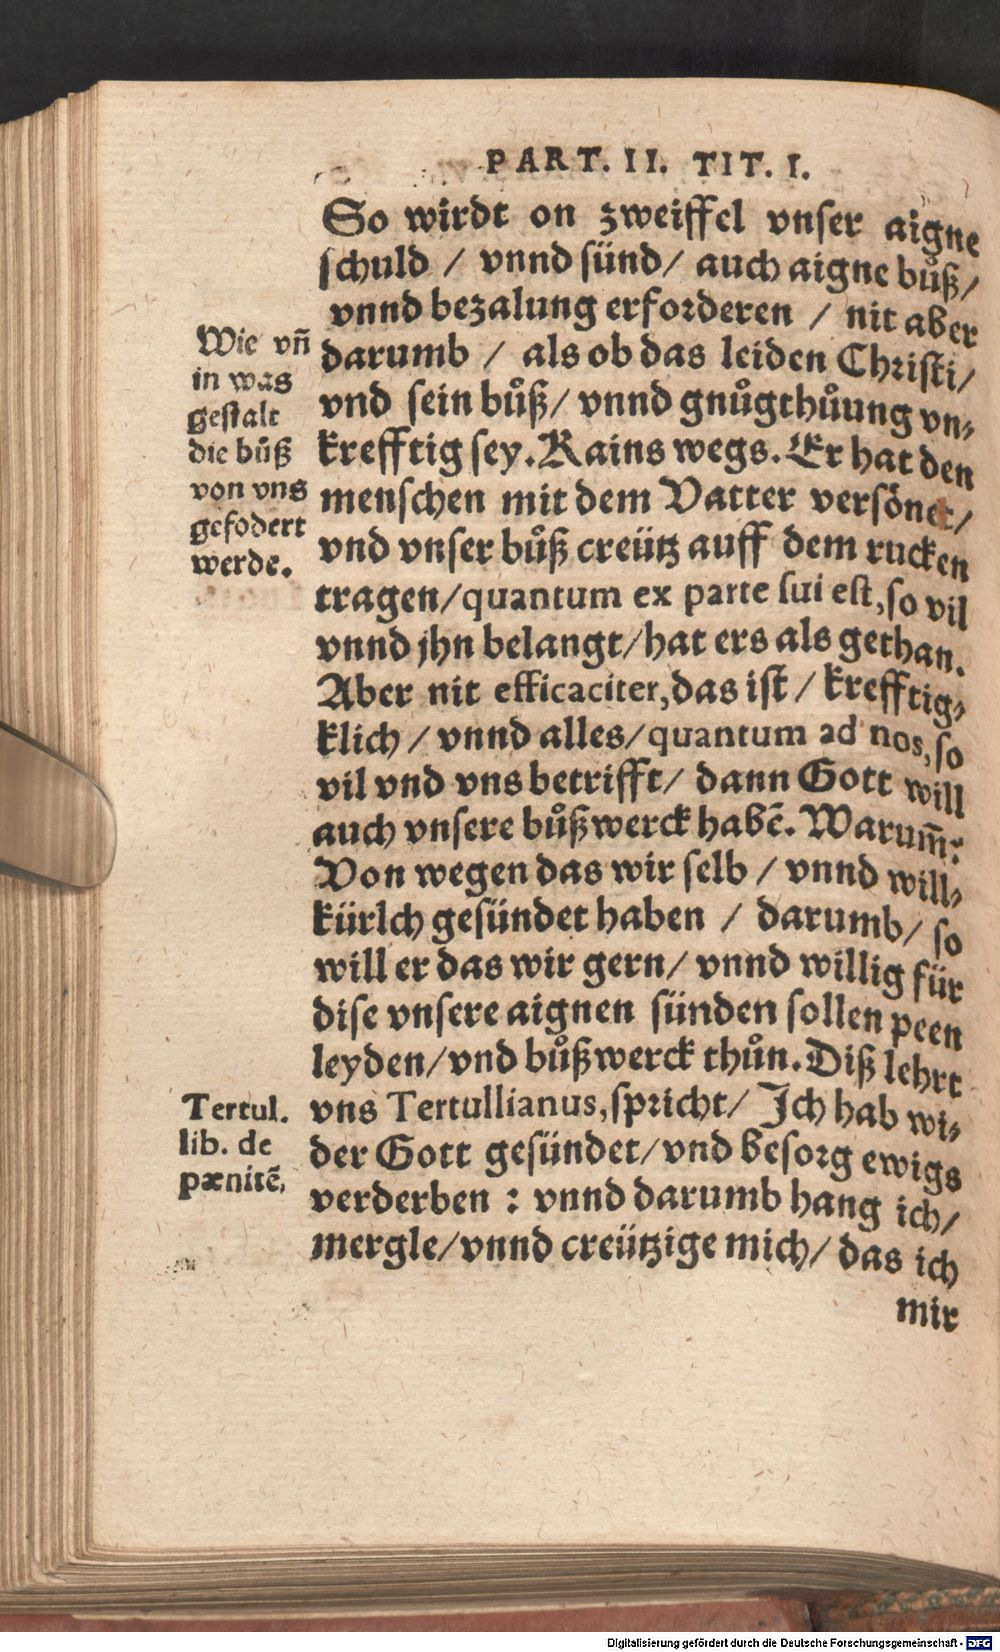 PART. II. TIT. I.
So wirdt on zweiffel vnser aigne
schuld / vnnd sünd / auch aigne bůß /
vnnd bezalung erforderen / nit aber
darumb / als ob das leiden Christi /
vnd sein bůß / vnnd gnůgthůung vn⸗
krefftig sey. Kains wegs. Er hat den
menschen mit dem Vatter versönet /
vnd vnser bůß creütz auff dem rucken
tragen / quantum ex parte sui est, so vil
vnnd jhn belangt / hat ers als gethan.
Aber nit efficaciter, das ist / krefftig⸗
klich / vnnd alles / quantum ad nos, so
vil vnd vns betrifft / dann Gott will
auch vnsere bůßwerck habẽ. Warum̃:
Von wegen das wir selb / vnnd will⸗
kürlch gesündet haben / darumb / so
will er das wir gern / vnnd willig für
dise vnsere aignen sünden sollen peen
leyden / vnd bůßwerck thůn. Diß lehrt
vns Tertullianus, spricht / Ich hab wi⸗
der Gott gesündet / vnd besorg ewigs
verderben : vnnd darumb hang ich /
mergle / vnnd creützige mich / das ich
mir
Wie vñ
in was
gestalt
die bůß
von vns
gefodert
werde.
Tertul.
lib. de
pænitẽ.
Digitalisierung gefördert durch die Deutsche Forschungsgemeinschaft - DFG